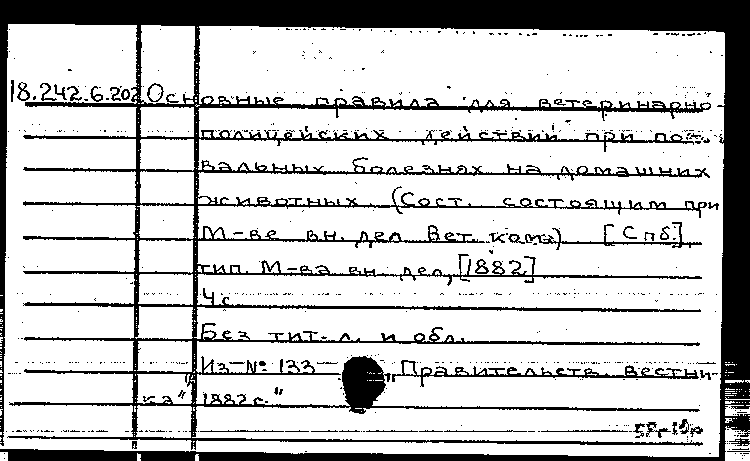 18.242.6.202 Основные правила для ветеринарно-
полицейских действий при по-
вальных болезнях на домашних
животных (Сост. состоящим при
М-ве вн. дел Вет. ком.) [Спб],
тип. М-ва вн. дел, [1882]
4 с.
Без тит. л. и обл.
Из № 133 "Правительств. вестни-
ка" 1882 г."